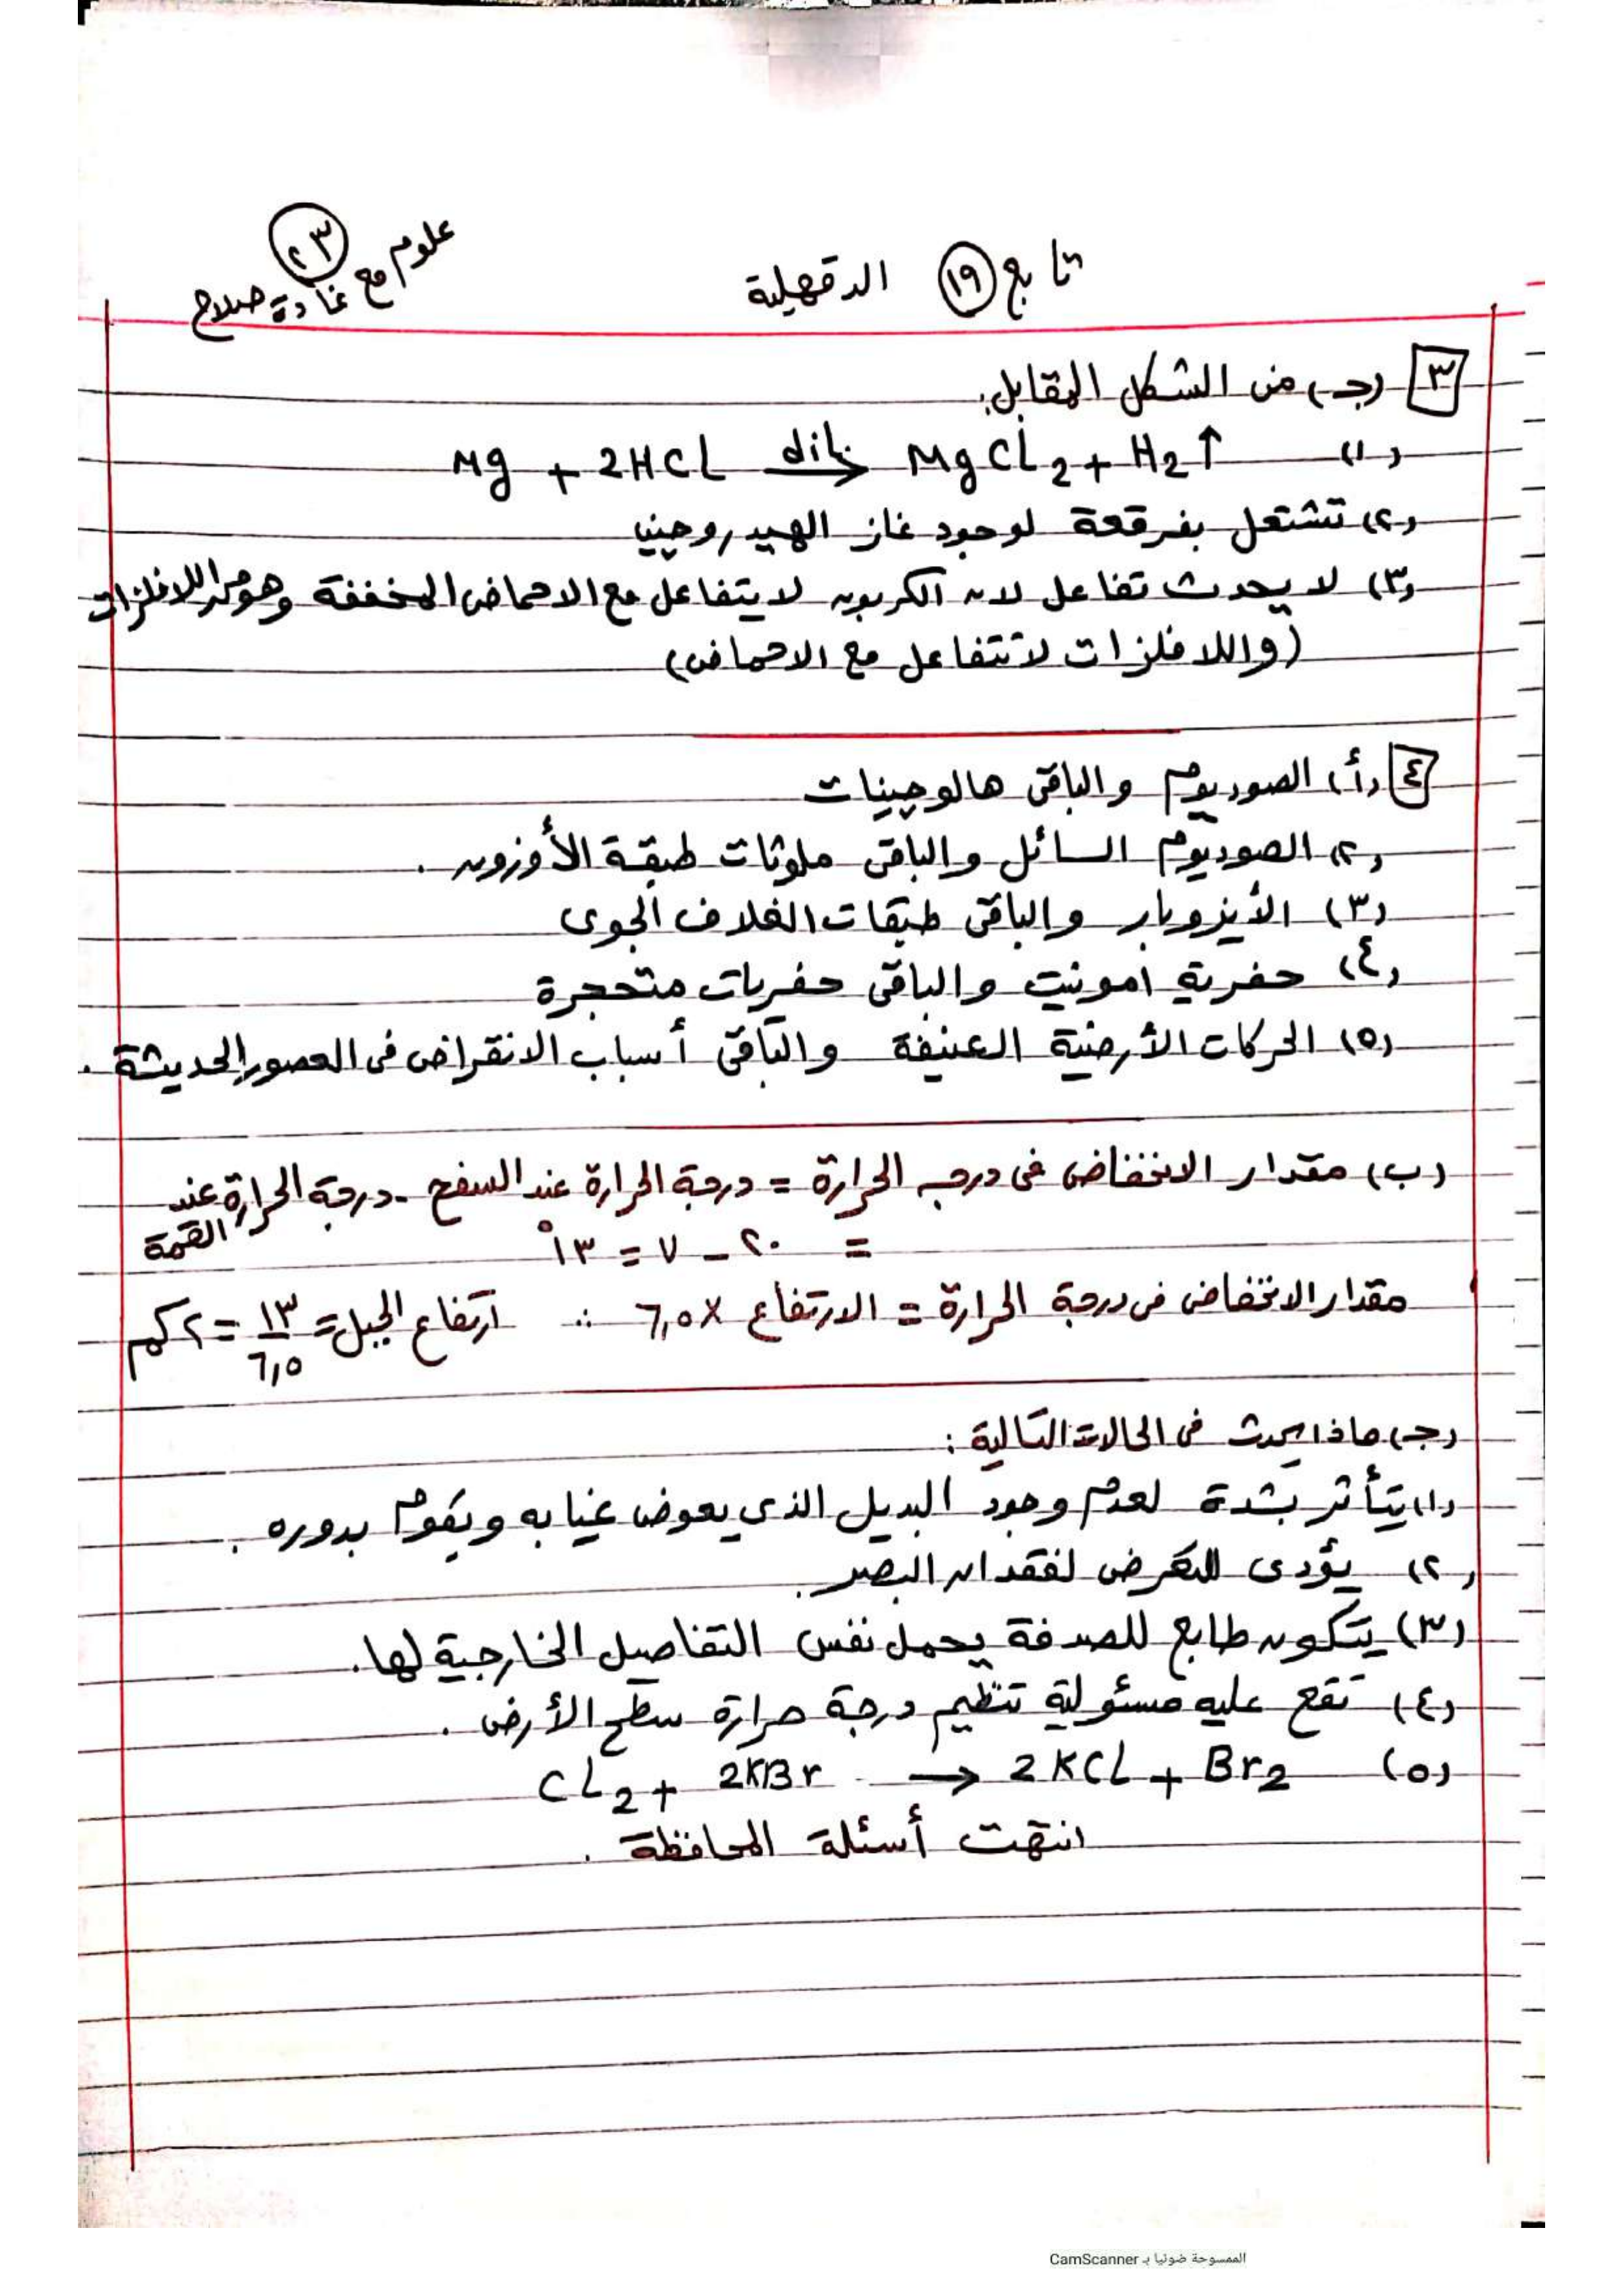 علوم مع غادة صلاح
٢٣
تابع ١٩ الدقهلية
٣ (جـ) من الشكل المقابل:
(١) Mg + 2HCl dil> MgCl2 + H2↑
(٢) تشتعل بفرقعة لوجود غاز الهيدروجين
(٣) لا يحدث تفاعل لان الكربون لا يتفاعل مع الاحماض المخففة وهو من اللافلزات
(واللافلزات لا تتفاعل مع الاحماض)
٤ (أ) الصوديوم والباقى هالوجينات
(٢) الصوديوم السائل والباقى ملوثات طبقة الأوزون .
(٣) الأيزوبار والباقى طبقات الغلاف الجوى
(٤) حفرية امونيت والباقى حفريات متحجرة
(٥) الحركات الأرضية العنيفة والباقى أسباب الانقراض فى العصور الحديثة .
(ب) مقدار الانخفاض فى درجه الحرارة = درجة الحرارة عند السفح - درجة الحرارة عند القمة
= ٢٠ - ٧ = ١٣°
مقدار الانخفاض فى درجة الحرارة = الارتفاع × ٦,٥ ∴ ارتفاع الجبل = ١٣/٦,٥ = ٢ كم
(جـ) ماذا يحدث فى الحالات التالية :
(١) يتأثر بشدة لعدم وجود البديل الذى يعوض غيابه ويقوم بدوره .
(٢) يؤدى للتعرض لفقدان البصر .
(٣) يتكون طابع للصدفة يحمل نفس التفاصيل الخارجية لها .
(٤) تقع عليه مسئولية تنظيم درجة حرارة سطح الأرض .
(٥) Cl2 + 2KBr → 2KCl + Br2
انتهت أسئلة المحافظة .
الممسوحة ضوئيا بـ CamScanner